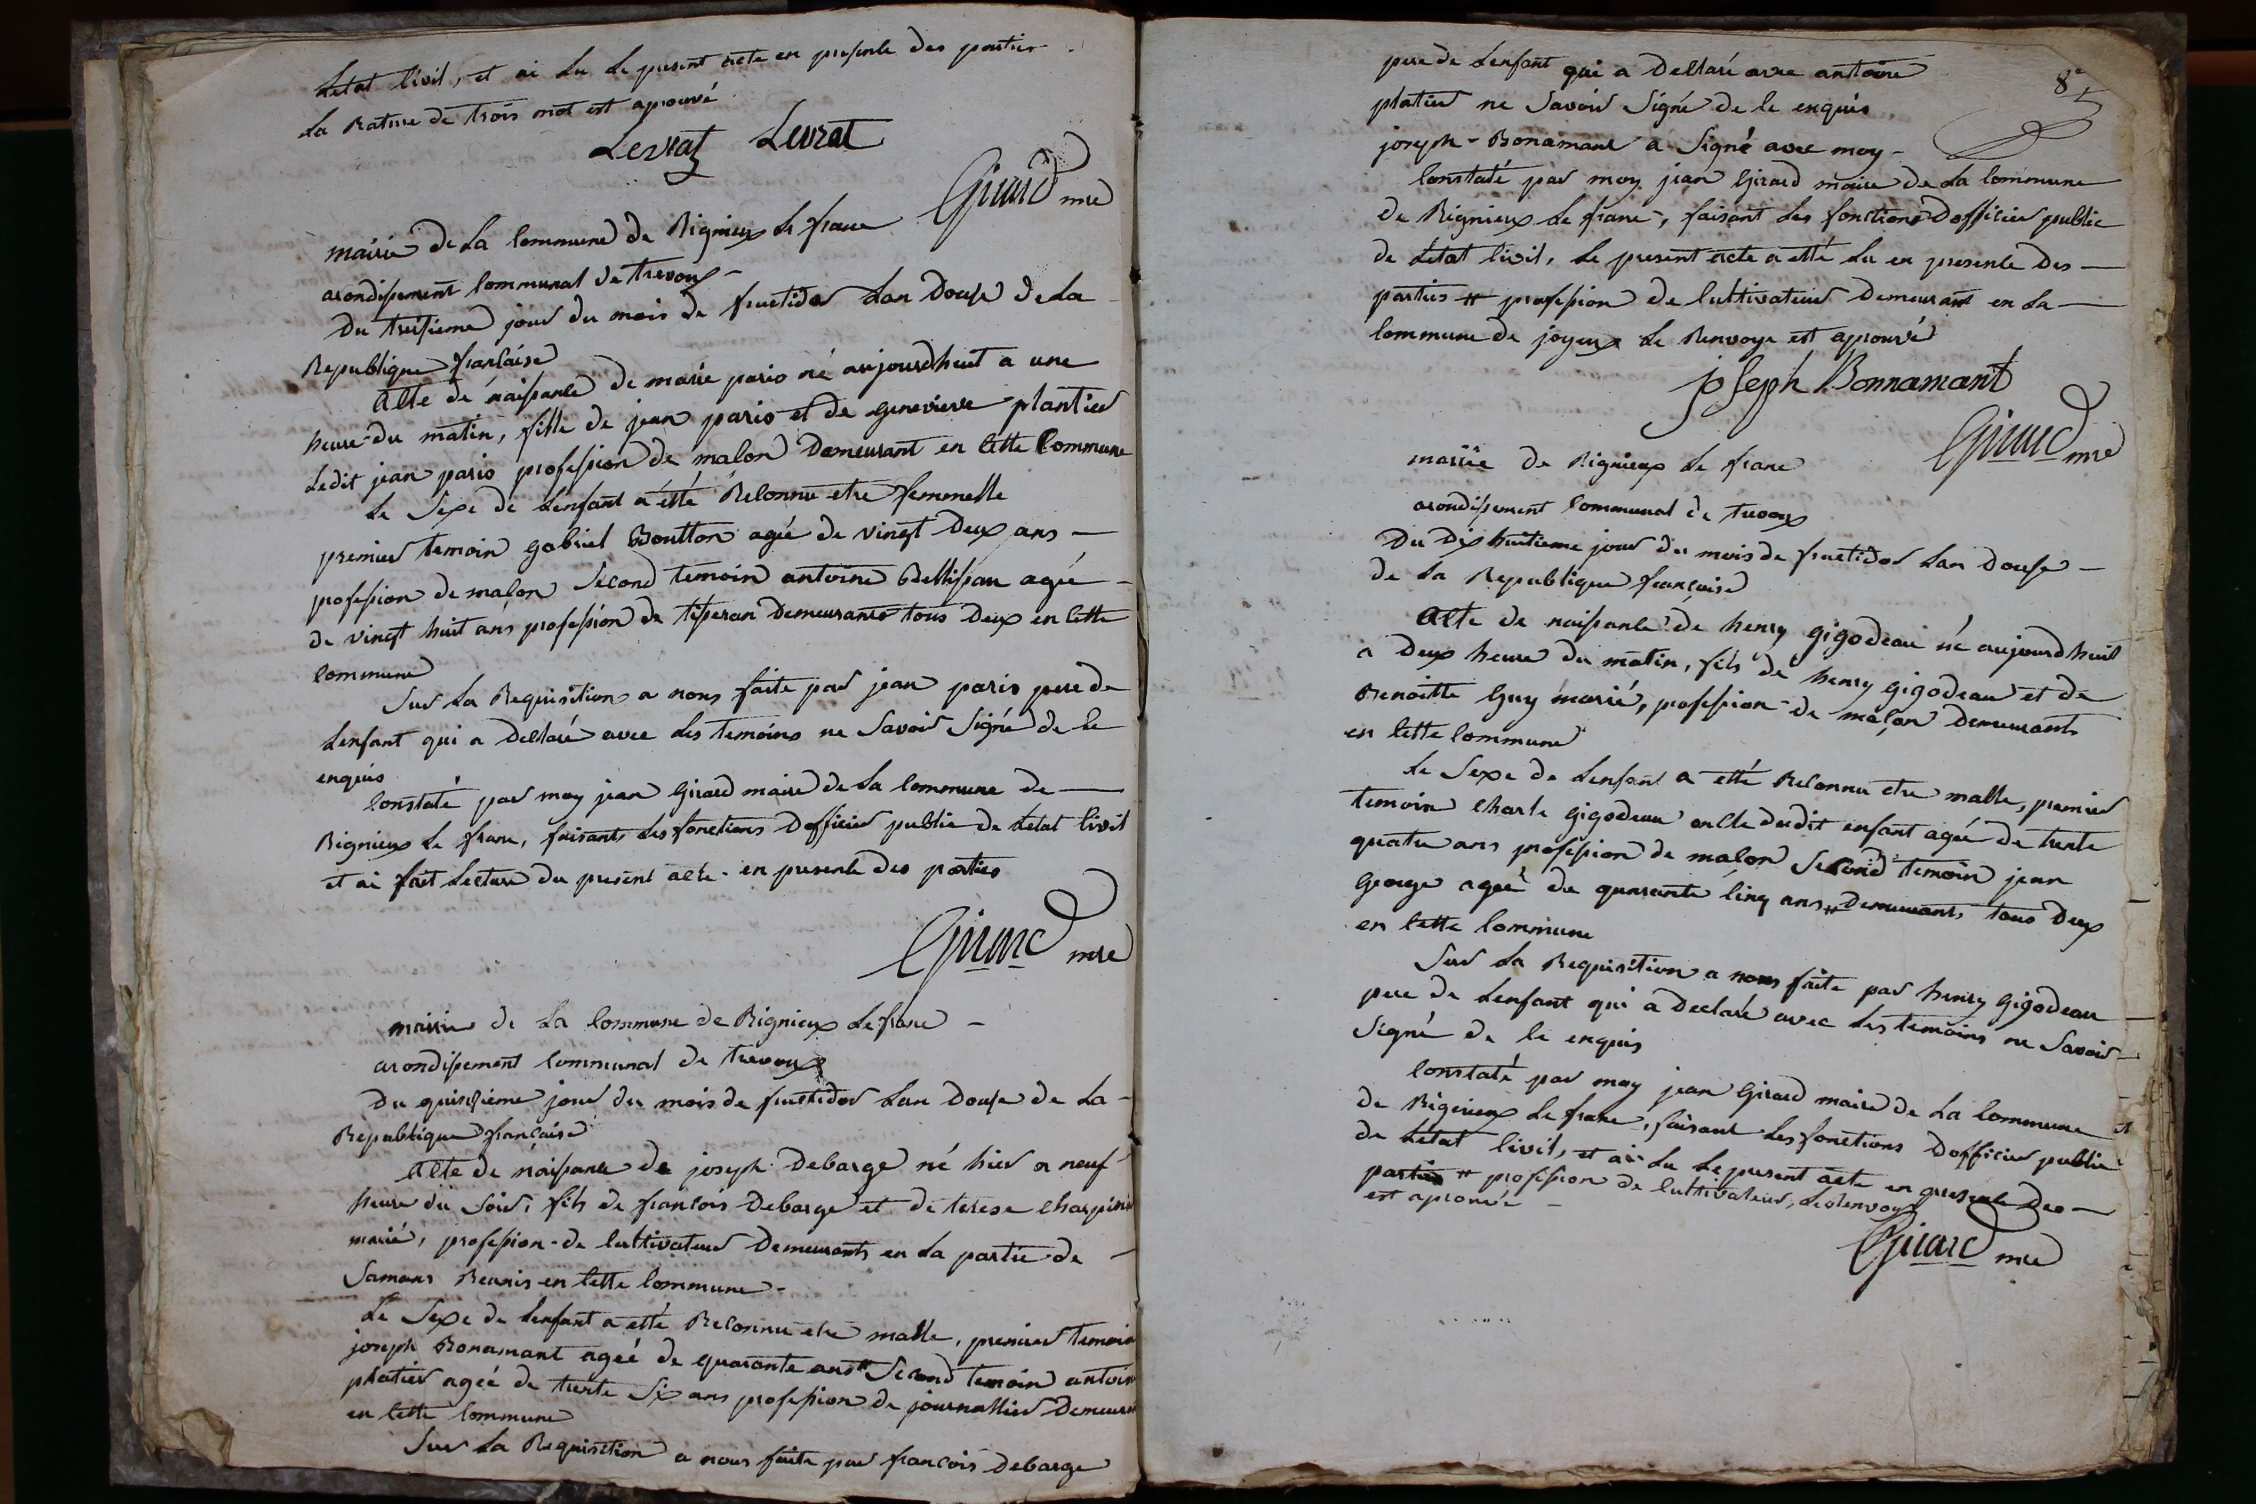 Letat Civil, et ai Lu Le present acte en presence des parties
La Rature de trois mot est aprouvé
Levrat Levrat
Girard mre
mairie de La Commune de Rignieux Le franc
arondissement Communal de trevoux
Du treisieme jour du mois de fructidor Lan Douse de La
Republique francaise
Acte de naissance de marie paris né aujourdhuit a une
heure du matin, fille de jean paris et de genevieve plantier
Ledit jean paris profession de malon Demeurant en Cette Commune
Le Sexe de Lenfant a été Reconnu etre femmelle
premier temoin gabriel Boutton ageé de vingt Deux ans
profession de malon Second temoin antoine Bellissan ageé
de vingt huit ans profession de tisseran Demeurants tous Deux en Cette
Commune
Sur La Requisition a nous faite par jean paris pere de
Lenfant qui a Declaré avec Les temoins ne Savoir Signé de Ce
enquis
Constaté par moy jean Girard maire de La Commune de
Rignieux Le franc, faisant Les fonctions Dofficier public de Letat Civil
et ai fait Lecture du present acte en presence des parties
Girard mre
mairie de La Commune de Rignieux Le franc
arondissement Communal de trevoux
Du quinzieme jour du mois de fructidor Lan Douse de La
Republique française
Acte de naissance de joseph Debarge né hier a neuf
heure du Soir, fils de francois Debarge et de terese Charpine
marié, profession de Cultivateur Demeurants en La partie de
Samans Reunis en Cette Commune
Le Sexe de Lenfant a etté Reconnu etre malle, premier temoin
joseph Bonamant ageé de quarante ans # Second temoin antoine
platier ageé de trente Six ans profession de journallier Demeurant
en Cette Commune
Sur La Requisition a nous faite par francois Debarge
8e
pere de Lenfant qui a Declaré avec antoine
platier ne Savoir Signé de Ce enquis
joseph Bonamant a Signé avec moy
Constaté par moy jean Girard maire de La Commune
de Rignieux Le franc, faisant Les fonctions Dofficier public
de Letat Civil, Le present acte a etté Lu en presence Des
parties # profession de Cultivateur Demeurant en La
Commune de joyeux Le Renvoye est aprouvé
joseph Bonnamant
Girard mre
mairie de Rignieux Le franc
arondissement Communal de trevoux
Du Dix huitieme jour du mois de fructidor Lan Douse
de La Republique française
Acte de naissance de henry gigodeau né aujourdhuit
a Deux heure du matin, fils de henry gigodeau et de
Benoitte Guy marié, profession de maçon Demeurants
en Cette Commune
Le Sexe de Lenfant a etté Reconnu etre malle, premier
temoin Charle gigodeau oncle dudit enfant ageé de trente
quatre ans profession de malon Second temoin jean
George ageé de quarante Cinq ans # Demeurants tous Deux
en Cette Commune
Sur La Requisition a nous faite par henry gigodeau
pere de Lenfant qui a Declaré avec Les temoins ne Savoir
Signé de Ce enquis
Constaté par moy jean Girard maire de La Commune
de Rignieux Le franc, faisant Les fonctions Dofficier public
de Letat Civil, et ai Lu Le present acte en presence Des
parties # profession de Cultivateur, Le Renvoy
est aprouvé
Girard mre